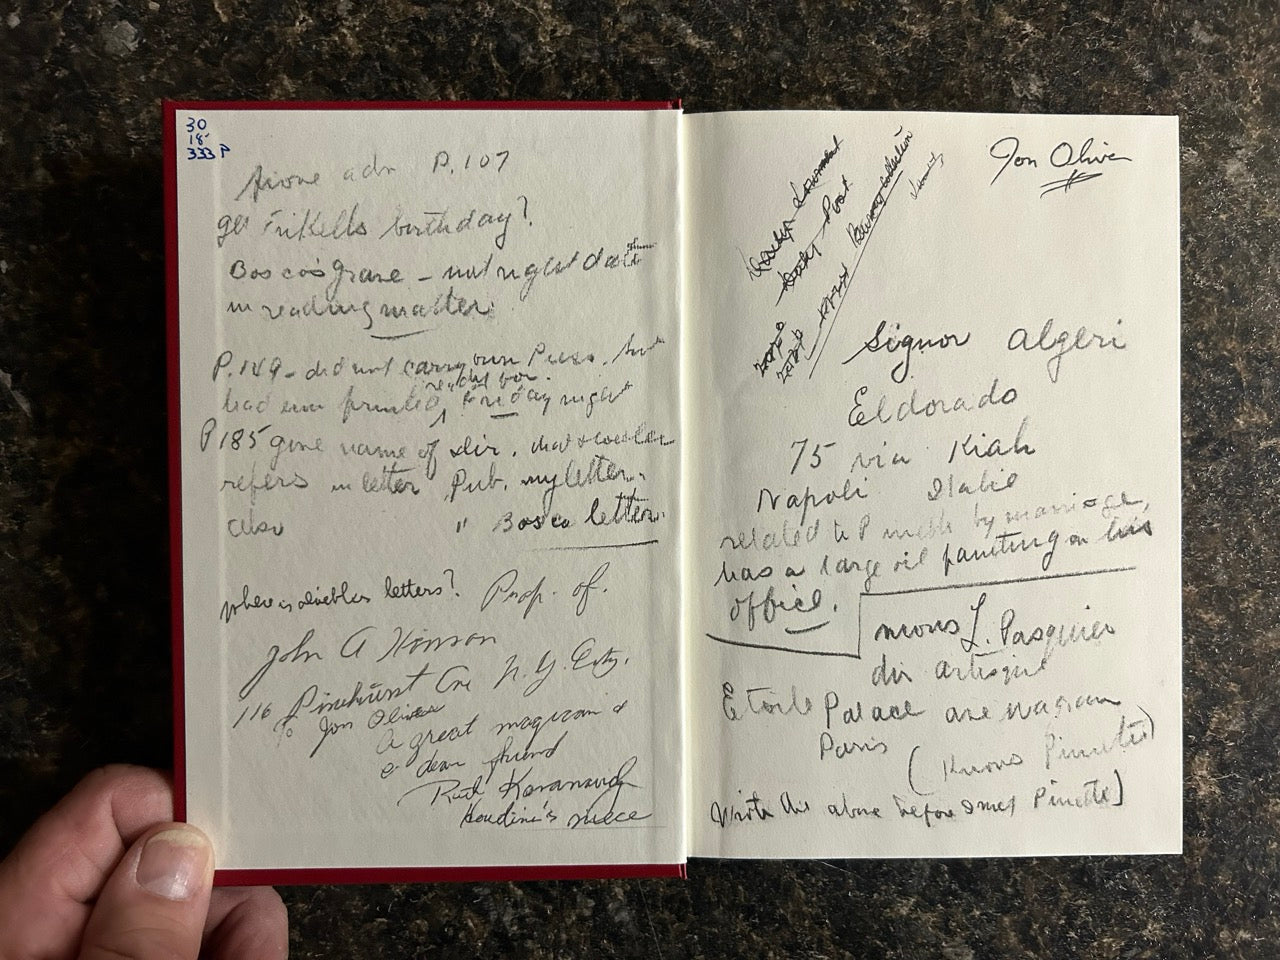 30
18
333 P
P. 107
get Frikells birthday?
Boscos grave - not right date
in reading matter.
P. 149 - did not carry own Press, but
had em printed, Friday night
P 185 give name of dir. that
refers in letter, Pub. my letter.
also " Bosco letter.
where is letters? Prop. of.
John A Hinson
116 Pinehurst Ave N. Y. City.
To Jon Oliver
A great magician &
a dear friend
Ruth Kavanaugh
Houdini's niece
Jon Oliver
Collection
Signor Algeri
Eldorado
75 via Kiah
Napoli Italie
related to by marriage,
has a large oil painting in his
office.
mons L. Pasquier
dir artisque
Etoile Palace ave wagram
Paris
(Knows Pinetti)
Wrote the above before I met Pinetti)